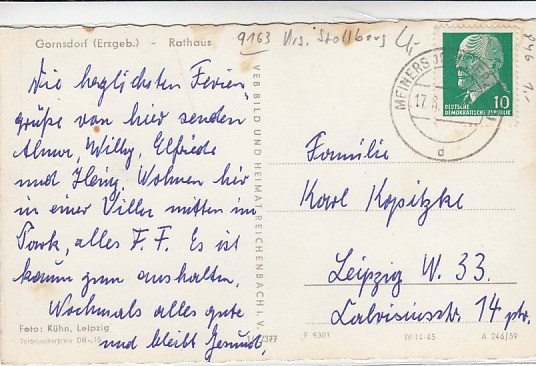 Gornsdorf (Erzgeb.) - Rathaus
9163 Krs. Stollberg
Die herzlichsten Ferien
grüße von hier senden
Almar, Willy, Elfriede
und Heinz. Wohnen hir
in einer Viller mitten im
Park, alles F. F. Es ist
kaum zum aushalten.
Nochmals alles gute
und bleibt Gesund.
Foto: Kühn, Leipzig
Verbraucherpreis DM
VEB BILD UND HEIMAT REICHENBACH I. V.
MEINERS
17.
d
10
DEUTSCHE
DEMOKRATISCHE REPUBLIK
Familie
Karl Kopitzke
Leipzig W. 33.
Calvisiusstr. 14 ptr.
F 9301
IV-14-45
A 246/59